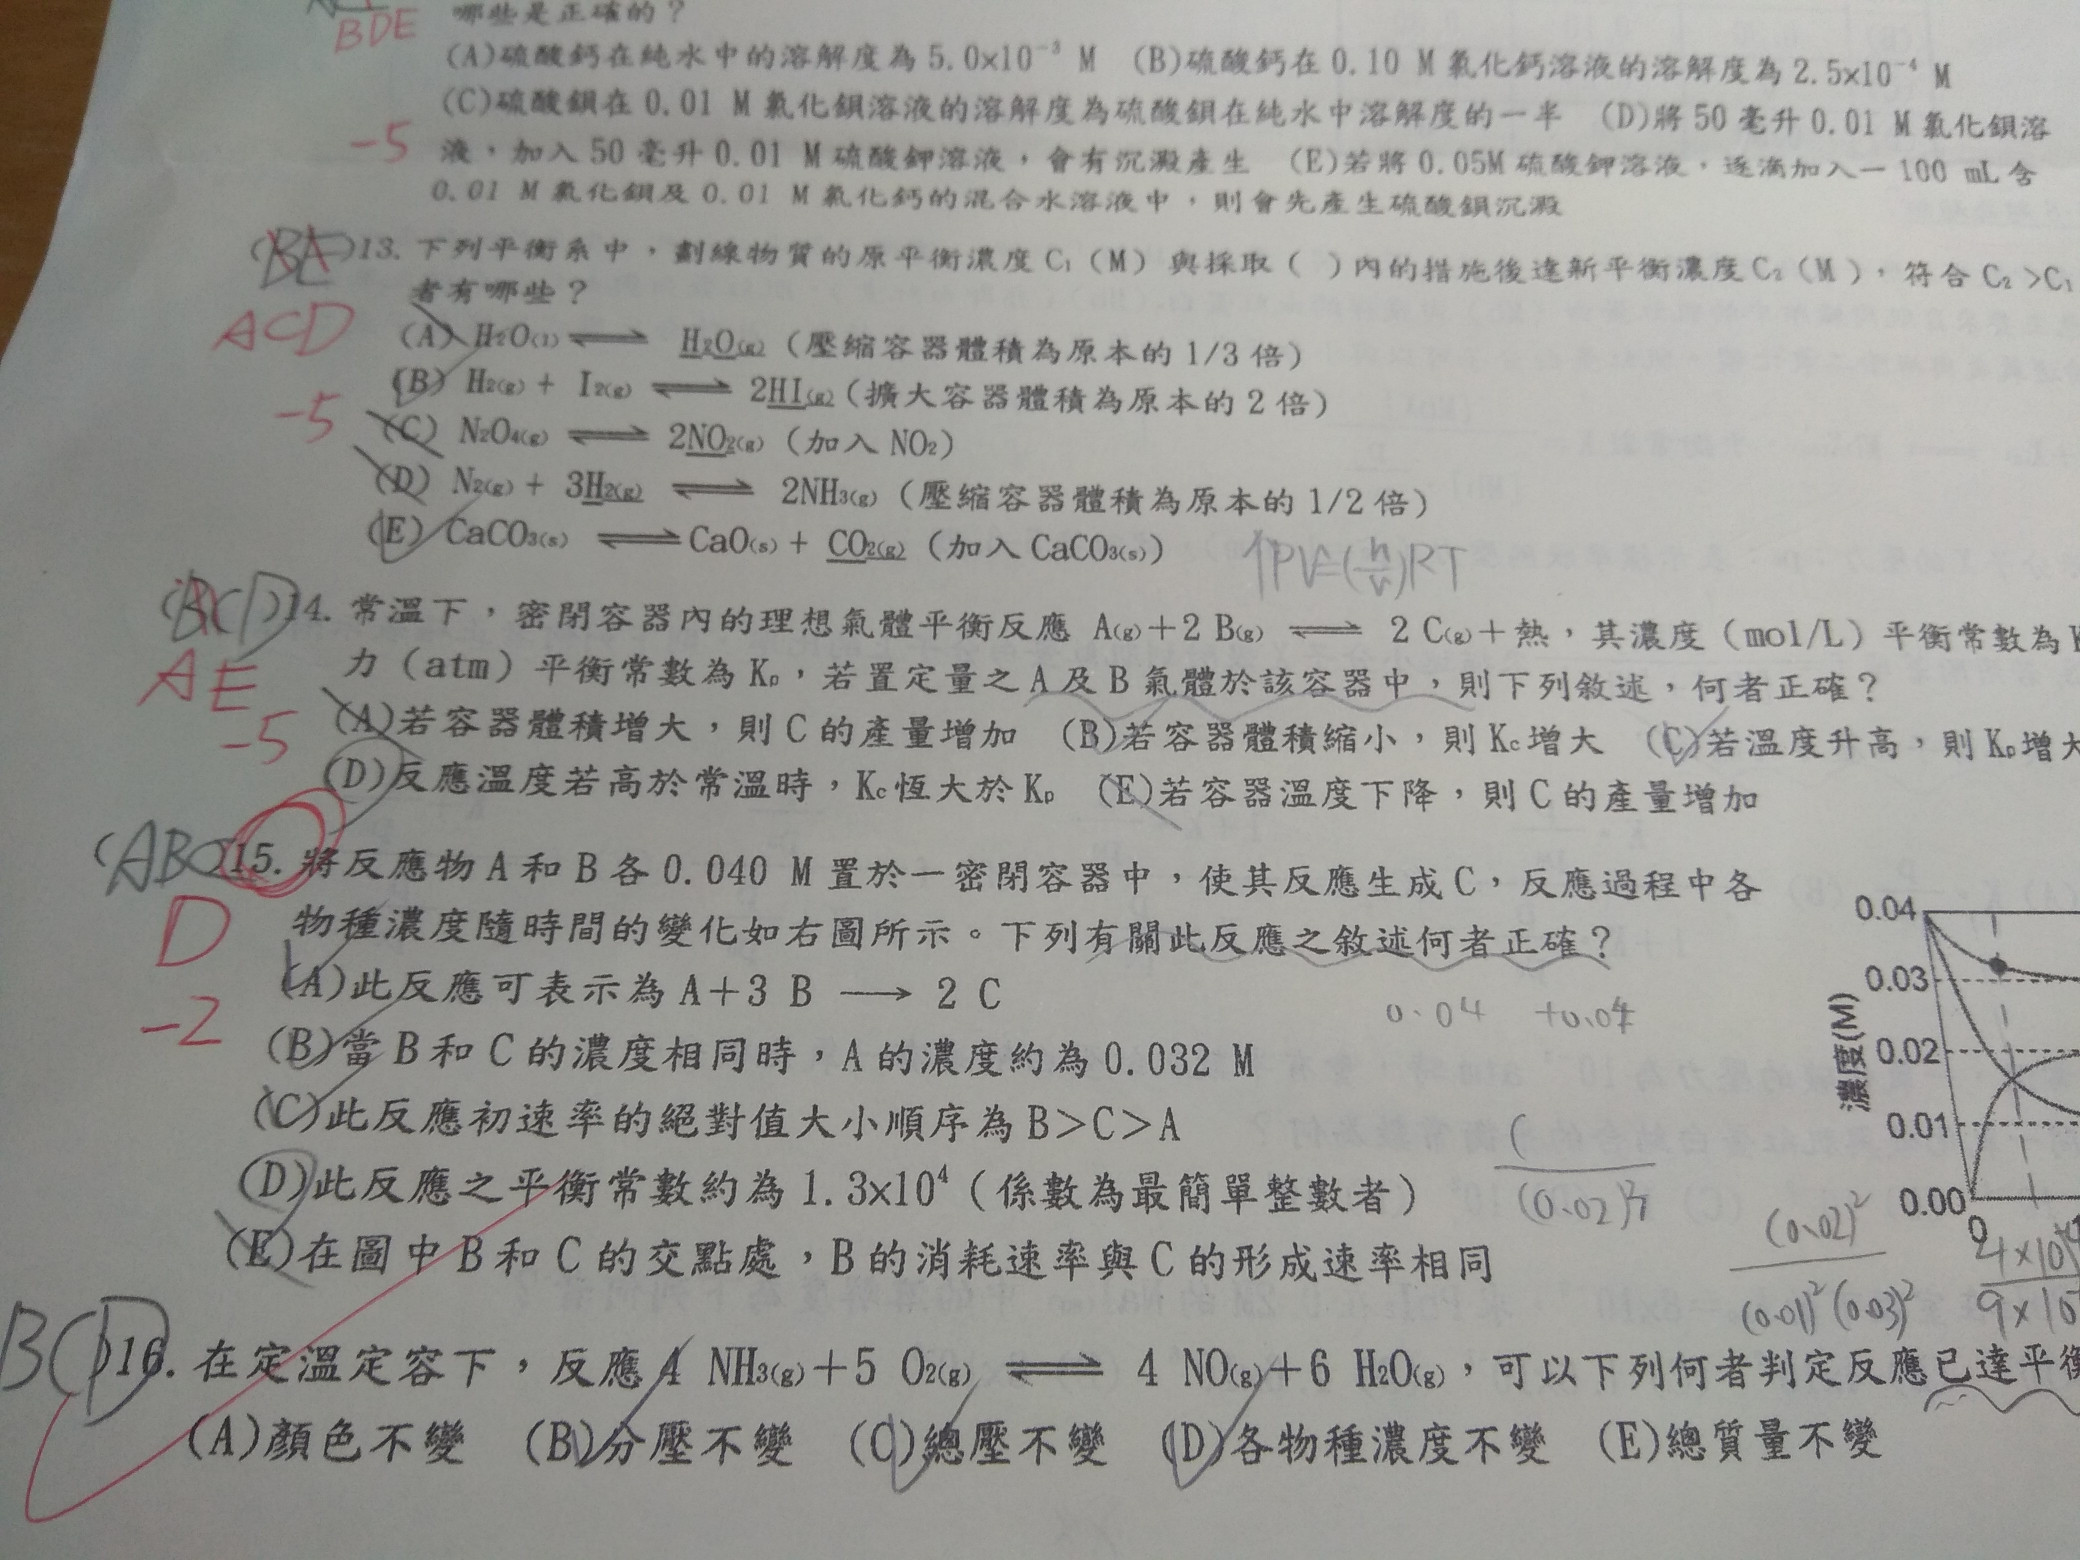 BDE
哪些是正確的？
(A)硫酸鈣在純水中的溶解度為 5.0×10⁻³ M (B)硫酸鈣在 0.10 M 氯化鈣溶液的溶解度為 2.5×10⁻⁴ M
(C)硫酸鋇在 0.01 M 氯化鋇溶液的溶解度為硫酸鋇在純水中溶解度的一半 (D)將 50 毫升 0.01 M 氯化鋇溶
-5
液，加入 50 毫升 0.01 M 硫酸鉀溶液，會有沉澱產生 (E)若將 0.05M 硫酸鉀溶液，逐滴加入一 100 mL 含
0.01 M 氯化鋇及 0.01 M 氯化鈣的混合水溶液中，則會先產生硫酸鋇沉澱
13. 下列平衡系中，劃線物質的原平衡濃度 C₁（M）與採取（ ）內的措施後達新平衡濃度 C₂（M），符合 C₂ >C₁
者有哪些？
ACD
(A) H₂O(l) ⇌ H₂O(g)（壓縮容器體積為原本的 1/3 倍）
(B) H₂(g) + I₂(g) ⇌ 2HI(g)（擴大容器體積為原本的 2 倍）
-5
(C) N₂O₄(g) ⇌ 2NO₂(g)（加入 NO₂）
(D) N₂(g) + 3H₂(g) ⇌ 2NH₃(g)（壓縮容器體積為原本的 1/2 倍）
(E) CaCO₃(s) ⇌ CaO(s) + CO₂(g)（加入 CaCO₃(s)）
↑PV=(n/v)RT
(BCD)14. 常溫下，密閉容器內的理想氣體平衡反應 A(g)＋2 B(g) ⇌ 2 C(g)＋熱，其濃度（mol/L）平衡常數為
AE
力（atm）平衡常數為 Kp，若置定量之 A 及 B 氣體於該容器中，則下列敘述，何者正確？
-5
(A)若容器體積增大，則 C 的產量增加 (B)若容器體積縮小，則 Kc 增大 (C)若溫度升高，則 Kp 增大
(D)反應溫度若高於常溫時，Kc 恆大於 Kp (E)若容器溫度下降，則 C 的產量增加
(ABC)15. 將反應物 A 和 B 各 0.040 M 置於一密閉容器中，使其反應生成 C，反應過程中各
D
物種濃度隨時間的變化如右圖所示。下列有關此反應之敘述何者正確？
(A)此反應可表示為 A＋3 B ⟶ 2 C
-2
0.04 +0.04
(B)當 B 和 C 的濃度相同時，A 的濃度約為 0.032 M
(C)此反應初速率的絕對值大小順序為 B>C>A
(D)此反應之平衡常數約為 1.3×10⁴（係數為最簡單整數者）
(E)在圖中 B 和 C 的交點處，B 的消耗速率與 C 的形成速率相同
濃度(M)
0.04
0.03
0.02
0.01
0.00
0
(0.02)²
(0.01)²(0.03)²
BCD)16. 在定溫定容下，反應 4 NH₃(g)＋5 O₂(g) ⇌ 4 NO(g)＋6 H₂O(g)，可以下列何者判定反應已達平衡
(A)顏色不變 (B)分壓不變 (C)總壓不變 (D)各物種濃度不變 (E)總質量不變